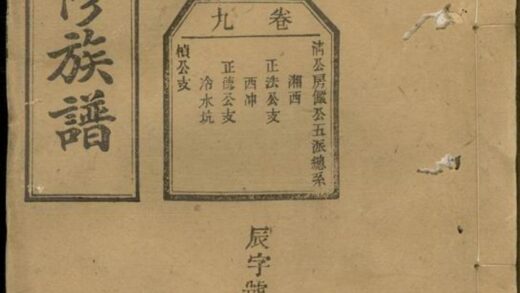 卷九
公房公五派總系
湘西
正法公支
西冲
正德公支
冷水坑
楨公支
辰字號
修族譜